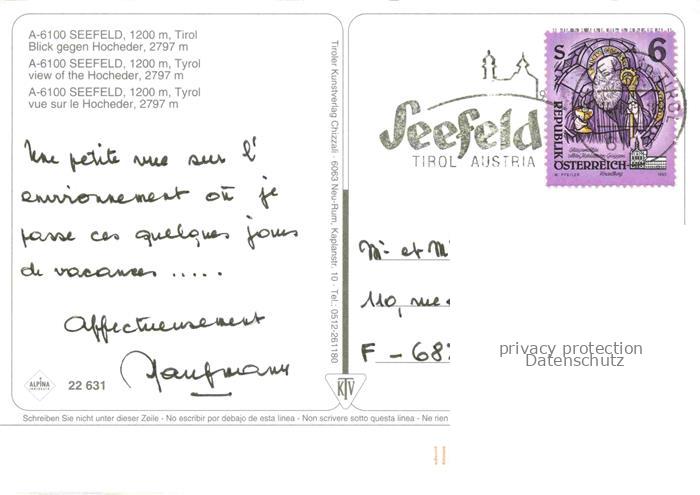 A-6100 SEEFELD, 1200 m, Tirol
Blick gegen Hocheder, 2797 m
A-6100 SEEFELD, 1200 m, Tyrol
view of the Hocheder, 2797 m
A-6100 SEEFELD, 1200 m, Tyrol
vue sur le Hocheder, 2797 m
Une petite vue sur l'
environnement où je
passe ces quelques jours
de vacances .....
Affectueusement
Kaufmann
ALPINA
22 631
Tiroler Kunstverlag Chizzali · 6063 Neu-Rum, Kaplanstr. 10 · Tel.: 0512-261180
KTV
Seefeld
TIROL AUSTRIA
S 6
REPUBLIK
ÖSTERREICH
1993
M. et M
110, rue
F - 68
privacy protection
Datenschutz
Schreiben Sie nicht unter dieser Zeile - No escribir por debajo de esta linea - Non scrivere sotto questa linea - Ne rien